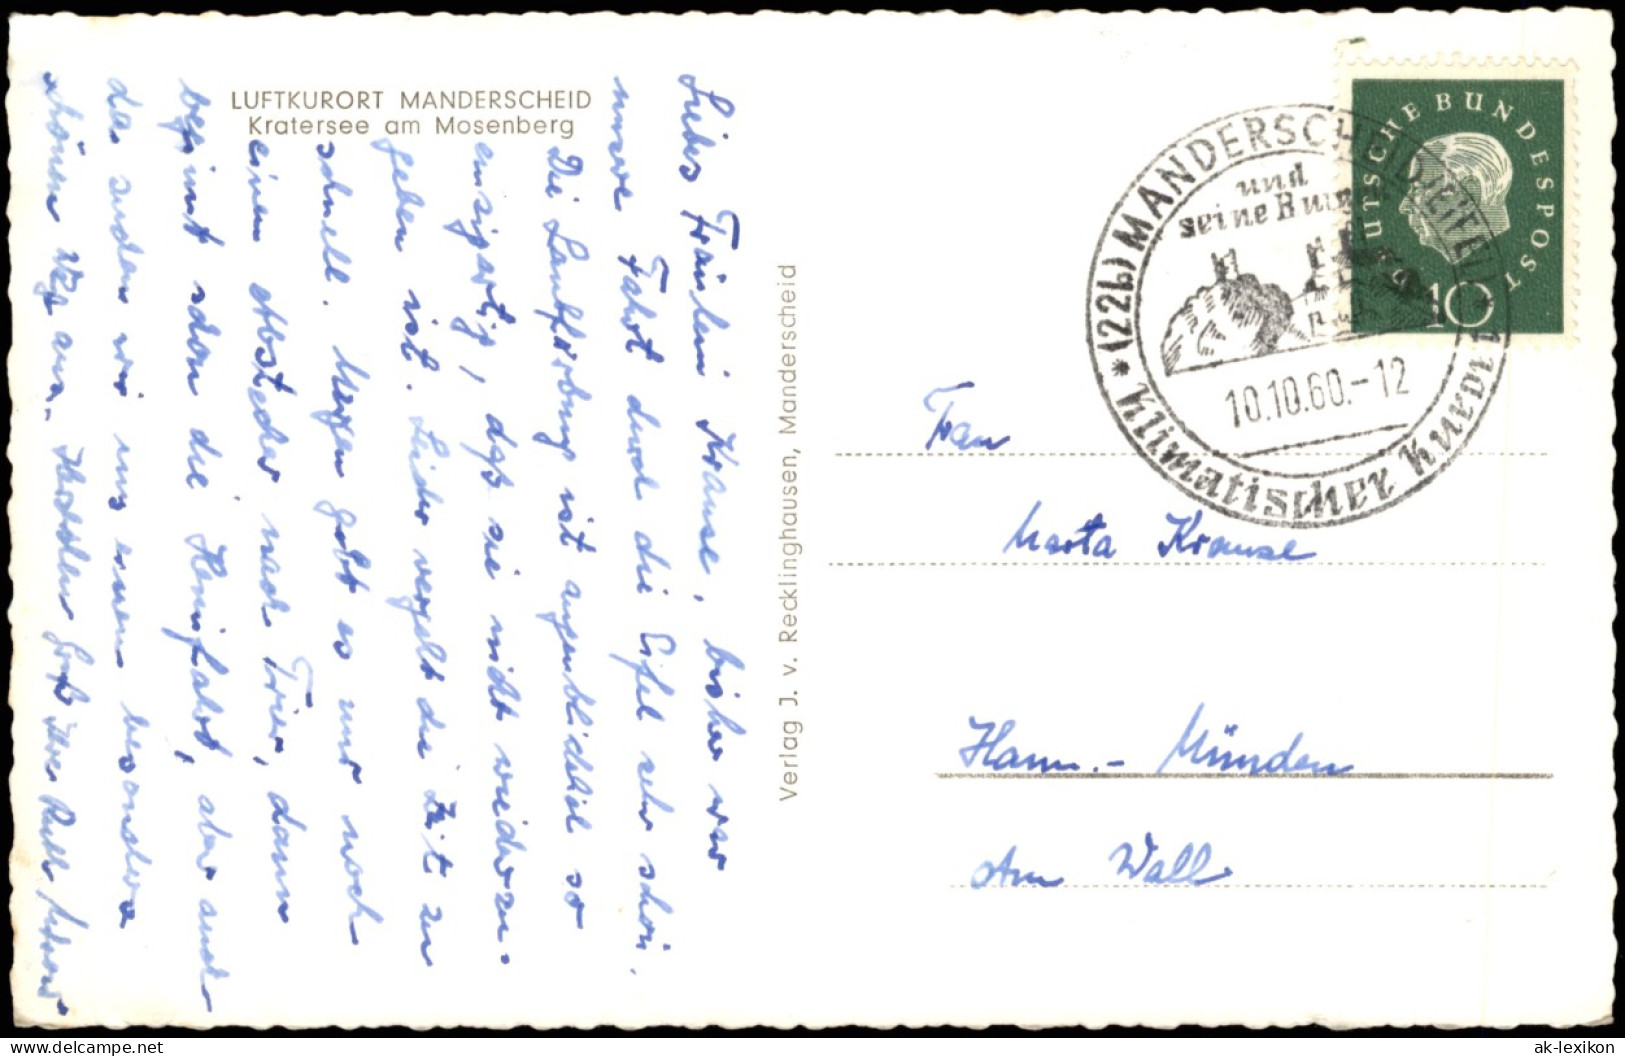 LUFTKURORT MANDERSCHEID
Kratersee am Mosenberg
Liebes Fräulein Krause, bisher war
unsere Fahrt durch die Eifel sehr schön.
Die Laubfärbung ist augenblicklich so
einzigartig, daß sie nicht wiederzu-
geben ist. Leider vergeht die Zeit zu
schnell. Morgen gibt es nur noch
einen Abstecher nach Trier, dann
beginnt schon die Heimfahrt, aber auch
da suchen wir uns einen besonders
schönen Weg aus. Herzlichen Gruß Ihre Ruth
Verlag J. v. Recklinghausen, Manderscheid
DEUTSCHE BUNDESPOST
10
(22b) MANDERSCHEID/EIFEL
und
seine Burgen
10.10.60.-12
Klimatischer Kurort
Frau
Marta Krause
Hann.- Münden
Am Wall
ak-lexikon
delcampe.net